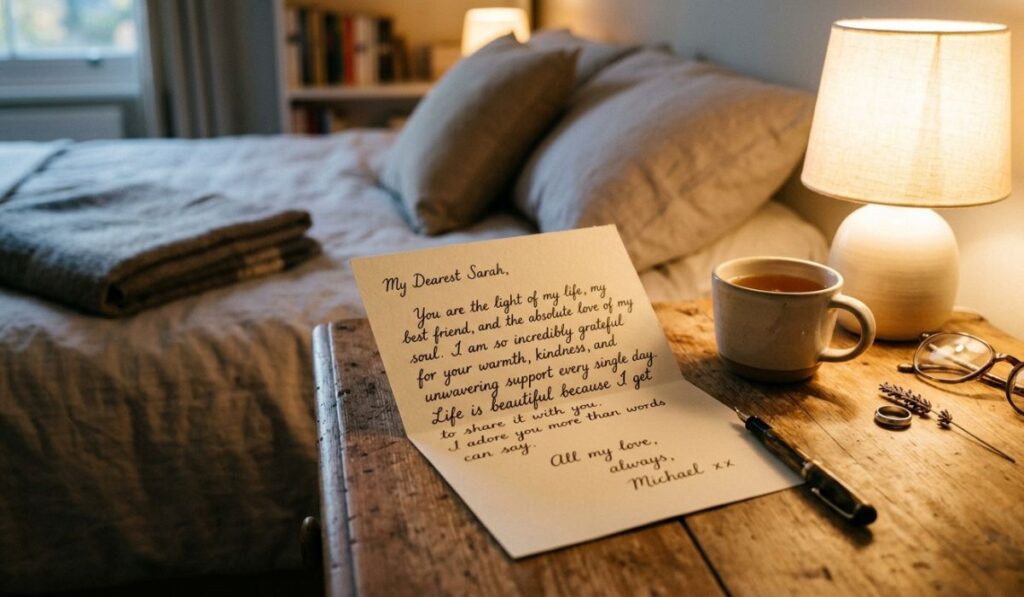 My Dearest Sarah,
You are the light of my life, my
best friend, and the absolute love of my
soul. I am so incredibly grateful
for your warmth, kindness, and
unwavering support every single day.
Life is beautiful because I get
to share it with you.
I adore you more than words
can say.
All my love,
always,
Michael xx